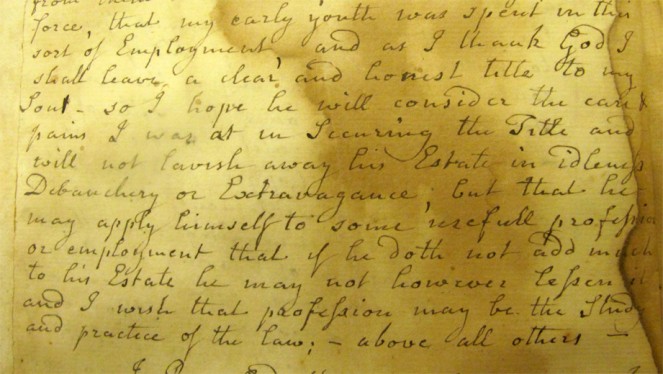 from
force, that my early youth was spent in this
sort of Employment and as I thank God I
shall leave a clear and honest title to my
Son - so I hope he will consider the care &
pains I was at in Securing the Title and
will not lavish away his Estate in idleness
Debauchery or Extravagance, but that he
may apply himself to some usefull profession
or employment that if he doth not add much
to his Estate he may not however lessen it
and I wish that profession may be the Study
and practice of the law; - above all others -